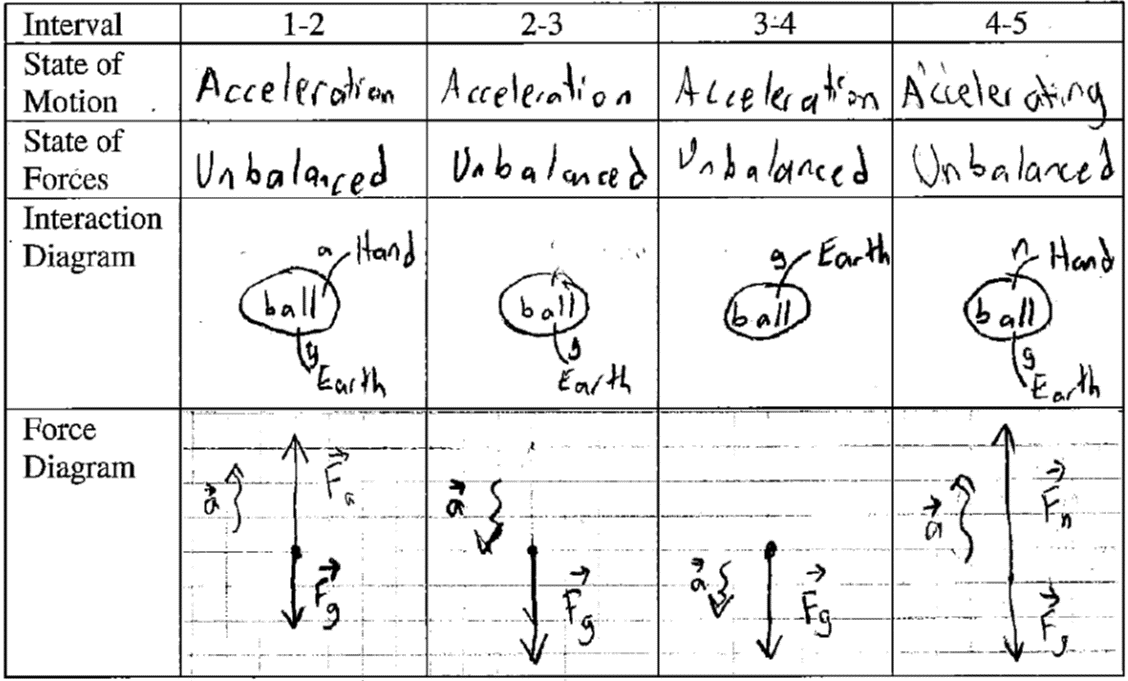 Interval 1-2 2-3 3-4 4-5
State of Motion Acceleration Acceleration Acceleration Accelerating
State of Forces Unbalanced Unbalanced Unbalanced Unbalanced
Interaction Diagram
a Hand
ball
g
Earth
ball
g
Earth
g Earth
ball
n Hand
ball
g
Earth
Force Diagram
a
F a
F g
a
F g
a
F g
a
F n
F g